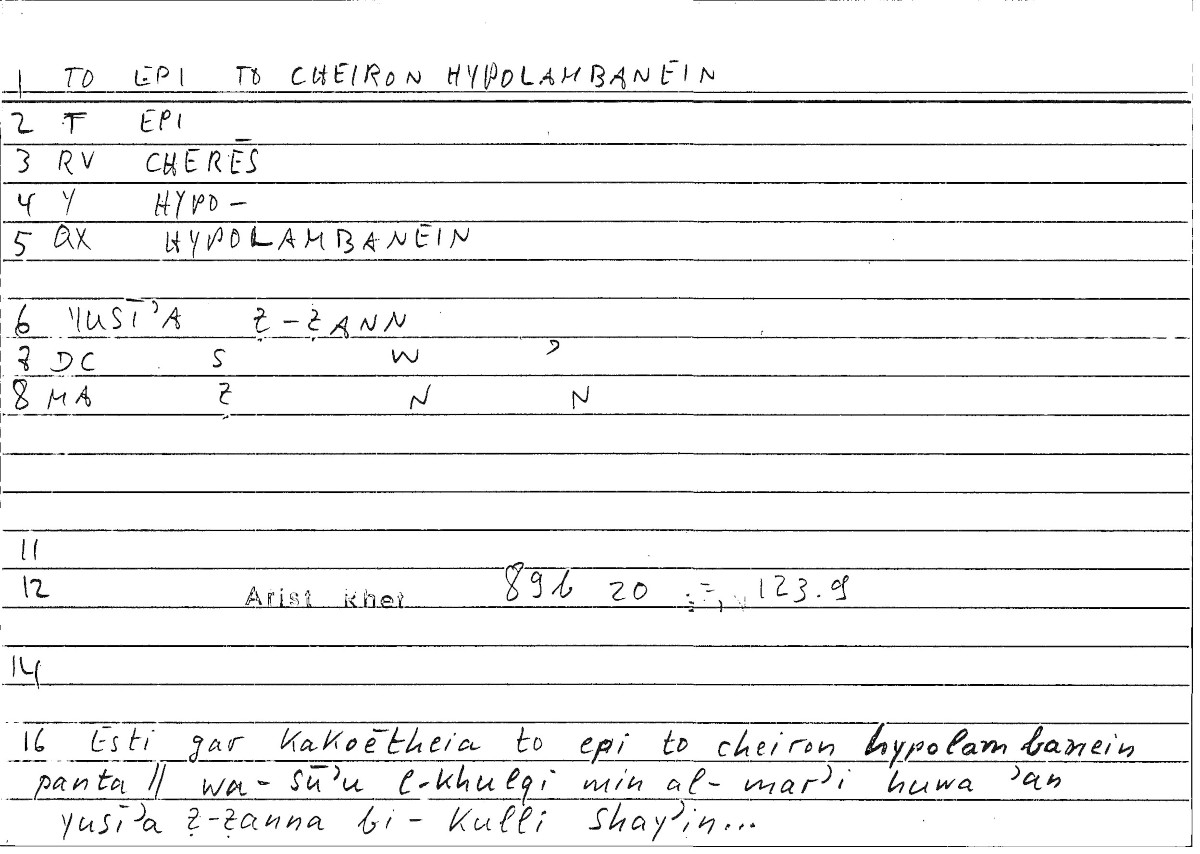 1 TO EPI TO CHEIRON HYPOLAMBANEIN
2 T EPI
3 RV CHERĒS
4 Y HYPO-
5 QX HYPOLAMBANEIN
6 YUSĪʾA Ẓ-ẒANN
7 DC S W ʾ
8 MA Ẓ N N
11
12 Arist Rhet 89b 20 123.9
14
16 Esti gar kakoētheia to epi to cheiron hypolambanein
panta // wa-sūʾu l-khulqi min al-marʾi huwa ʾan
yusīʾa ẓ-ẓanna bi-kulli shayʾin...